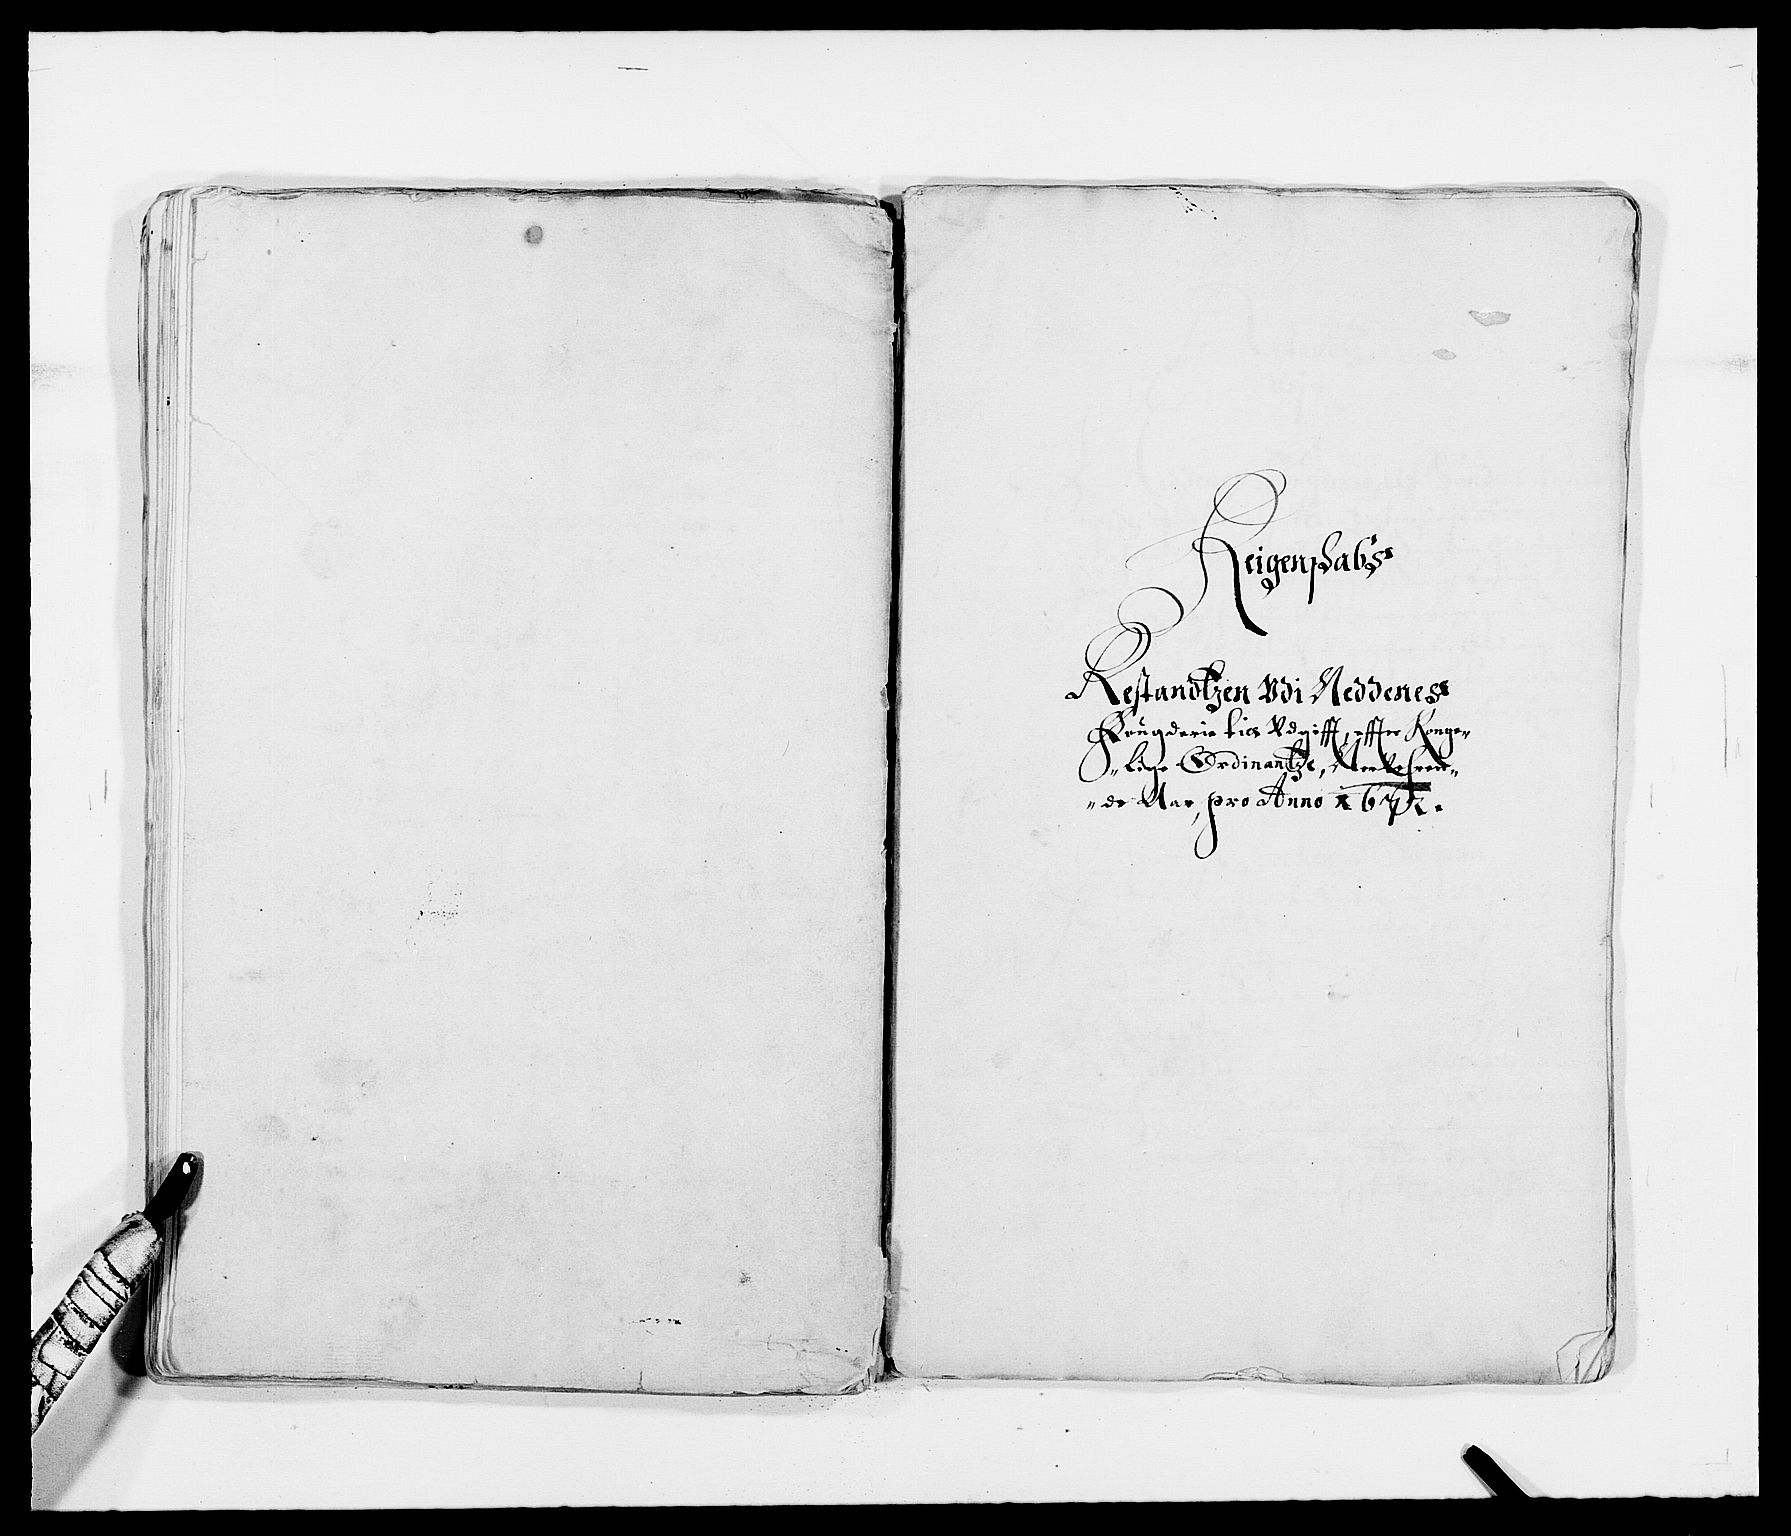 Reigenskabs
Restandtzen Udi Neddenes
Fougderie tis Udgifft, effter Konge-
-lige Ordinantze, Nerverren-
-de Aar, pro Anno 1672.